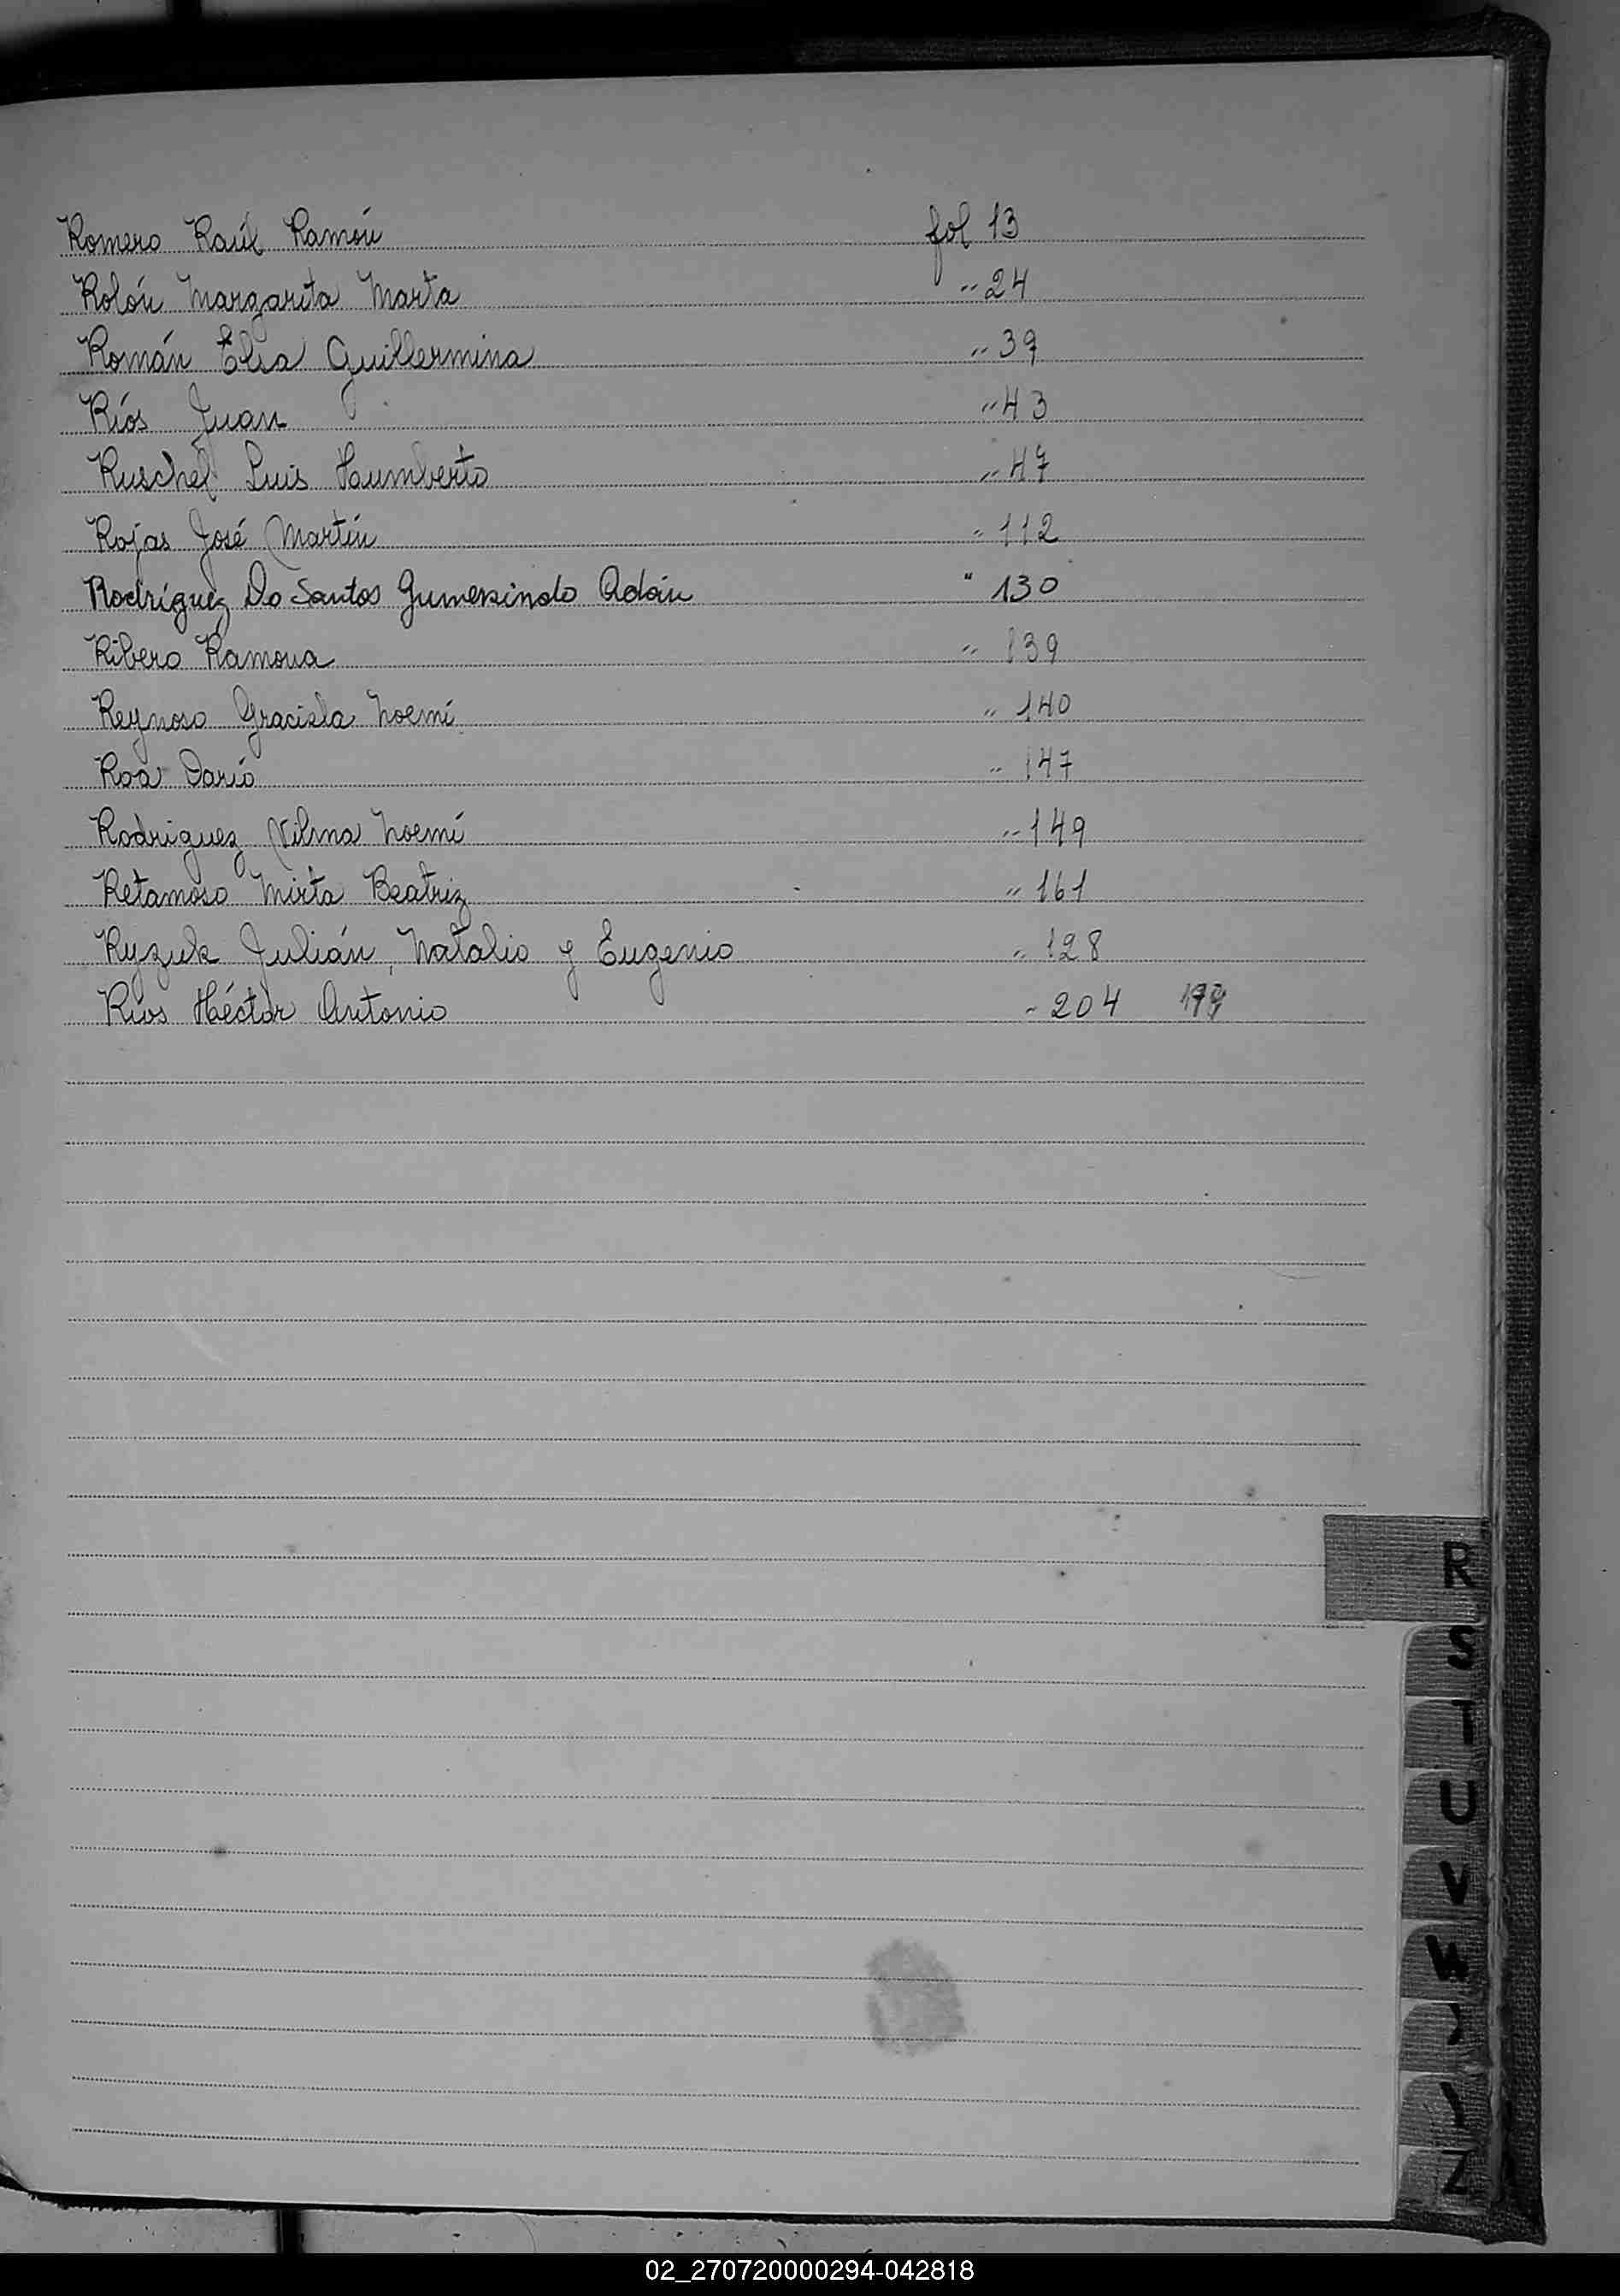 Romero Raúl Ramón fol 13
Rolón Margarita Marta " 24
Román Elsa Guillermina " 39
Ríos Juan " 43
Ruschel Luis Humberto " 47
Rojas José Martín " 112
Rodríguez Do Santos Gumersindo Adán " 130
Ribero Ramona " 139
Reynoso Graciela Noemí " 140
Roa Darío " 147
Rodriguez Vilma Noemí " 149
Retamoso Mirta Beatriz " 161
Ryzuk Julián, Natalio y Eugenio " 128
Ríos Héctor Antonio " 204
R
S
T
U
V
W
Z
02_270720000294-042818